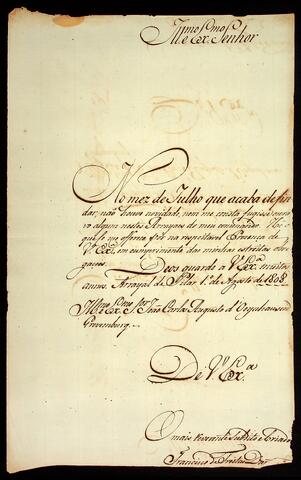 Illmo. e Exmo. Senhor
No mez de Julho que acaba de fin
dar, não houve novidade, nem me consta fugisse escra
vo algum nestes Arrayaes do meu comando. He
que se me offerece pôr na respeitavel Prezença de
V.ª Ex.ª em cumprimento das minhas estreitas obri
gaçoes.
Deos guarde a V.ª Ex.ª muitos
annos. Arrayal do Pilar 1.º de Agosto de 1808.
Illmo. e Exmo. Snr. João Carlos Augusto d'Oeynhausen
Grevemburg.
De V.ª Ex.ª
O mais reverente Subdito e Criado
Francisco de